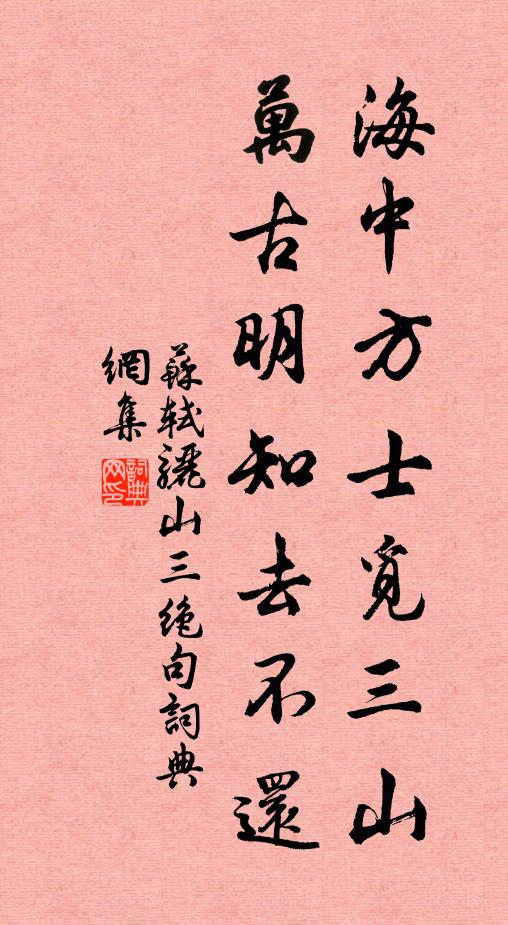 海中方士覓三山
萬古明知去不還
蘇軾驪山三絕句詞典
網集
詞典網印